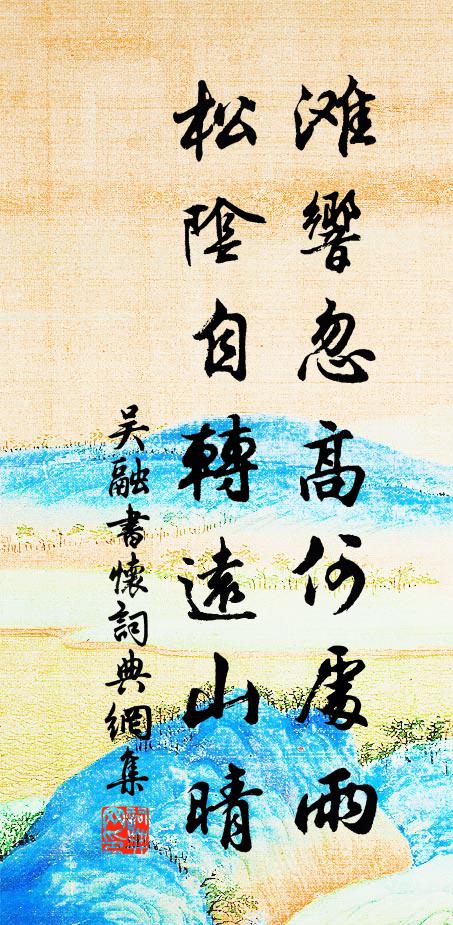 滩響忽高何處雨
松陰自轉遠山晴
吴融書懷詞典網集